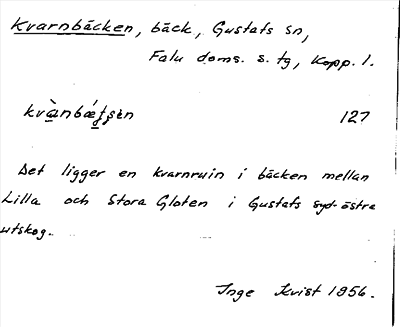 Kvarnbäcken, bäck, Gustafs sn,
Falu doms. s. tg, Kopp. l.
127
Det ligger en kvarnruin i bäcken mellan
Lilla och Stora Gloten i Gustafs syd-östra
utskog.
Inge Kvist 1956.